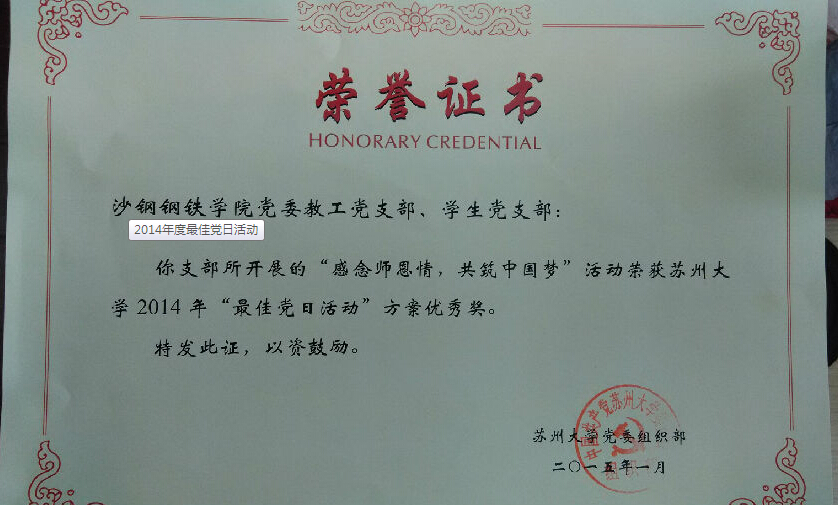 荣誉证书
HONORARY CREDENTIAL
沙钢钢铁学院党委教工党支部、学生党支部：
2014年度最佳党日活动
你支部所开展的“感念师恩情，共筑中国梦”活动荣获苏州大
学2014年“最佳党日活动”方案优秀奖。
特发此证，以资鼓励。
中国共产党苏州大学
苏州大学党委组织部
二〇一五年一月
组织